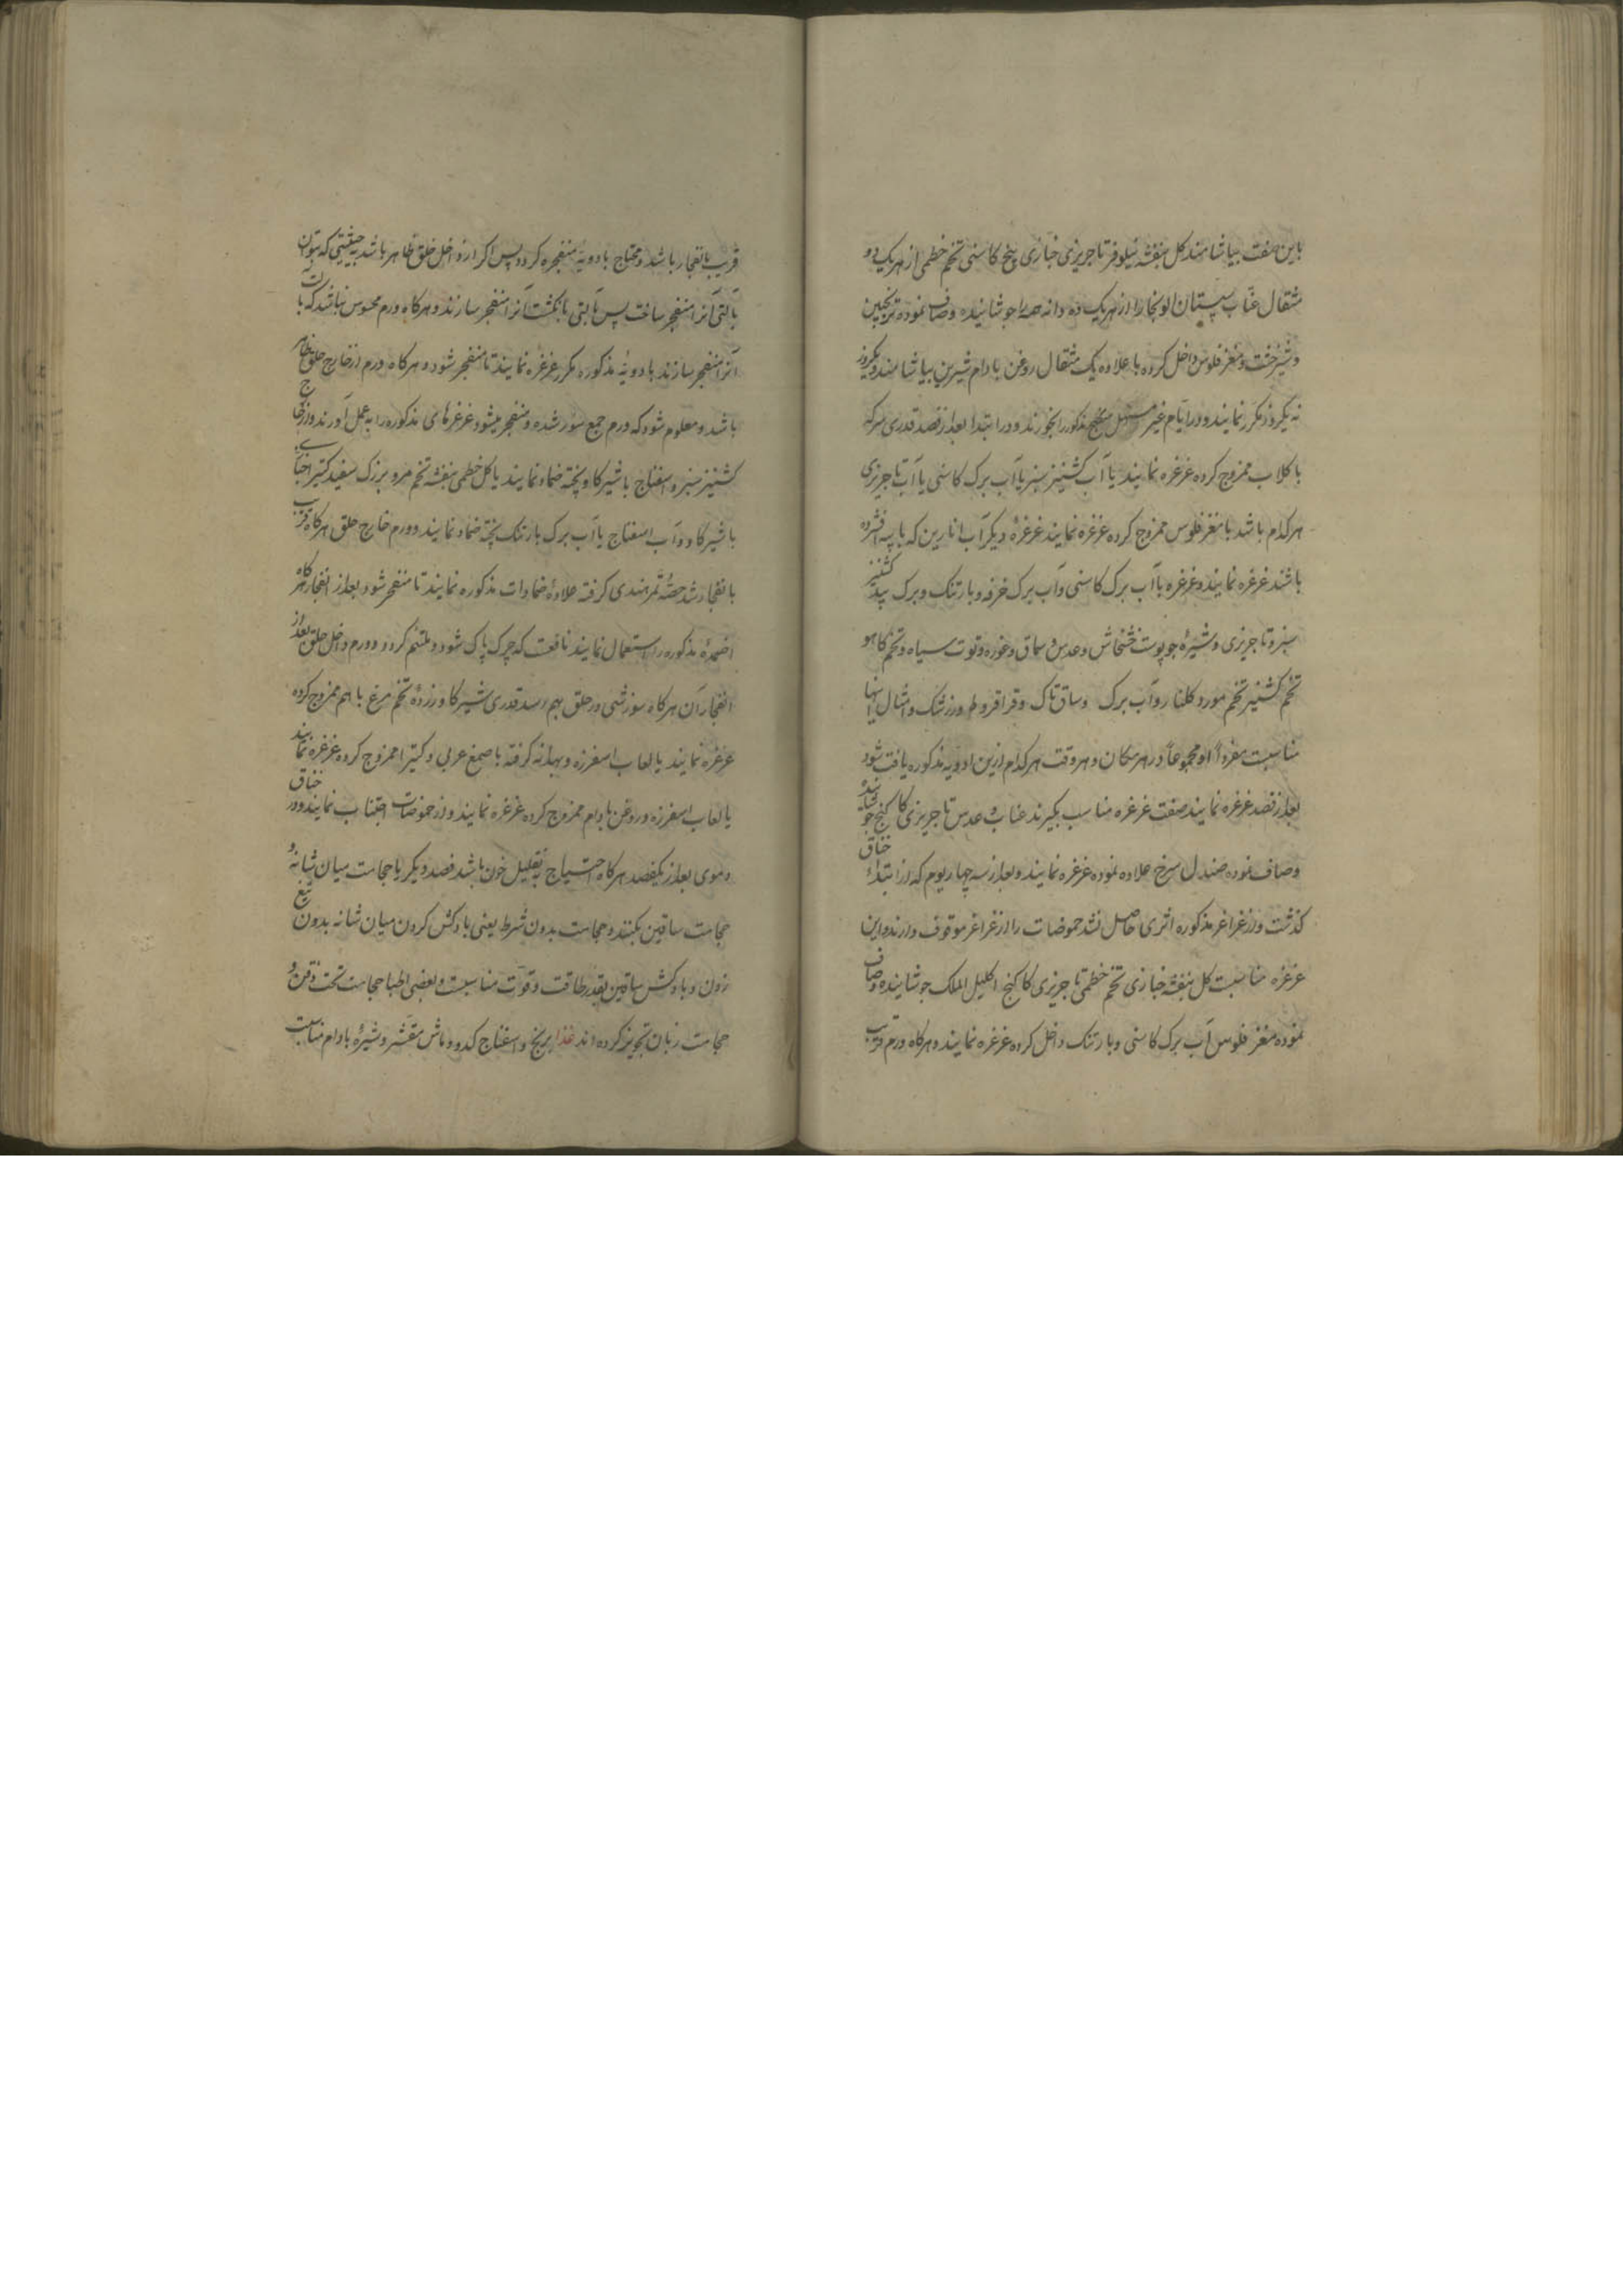 باین صفت بیاشامند کل بنفشه نیلوفر تاجریزی خبازی بیخ کاسنی تخم خطمی از هریک دو
مثقال عناب سپستان الوبخارا از هریک ده دانه همه را جوشانیده و صاف نموده ترنجبین
و شیرخشت و مغز فلوس داخل کرده با علاوه یک مثقال روغن بادام شیرین بیاشامند و یکروز
نه یکروز مکرر نمایند و در ایام غیر مسهل مذکور را بخورند و در ابتدا بعد از فصد قدری سرکه
با کلاب ممزوج کرده غرغره نمایند یا آب کشنیز سبز یا آب برک کاسنی یا آب تاجریزی
هرکدام باشد با مغز فلوس ممزوج کرده غرغره نمایند غرغرهٔ دیکر آب انارین که با پیه افشرده
باشند غرغره نمایند و غرغره با آب برک کاسنی و آب برک خرفه و بارتنک و برک بید کشنیز
سبز و تاجریزی و شیرهٔ جو پوست خشخاش و عدس و سماق و غوره و توت سیاه و تخم کاهو
تخم کشنیز تخم مورد کلنار و آب برک و ساق تاک و قراقروط و زرشک و امثال اینها
مناسبت مفرداً او مجموعاً در هر مکان و هر وقت هرکدام ازین ادویه مذکوره یافت شود
بعد از فصد غرغره نمایند صفت غرغره مناسب بکیرند عناب عدس تاجریزی کاکنج جوشانیده
و صاف نموده صندل سرخ علاوه نموده غرغره نمایند و بعد از سه چهار یوم که از ابتداء خناق
کذشت و از غراغر مذکوره اثری حاصل نشد حموضات را از غراغر موقوف دارند و این
غرغره مناسبت کل بنفشه خبازی تخم خطمی تاجریزی کاکنج اکلیل الملک جوشانیده و صاف
نموده مغز فلوس آب برک کاسنی و بارتنک داخل کرده غرغره نمایند و هرکاه ورم قریب
قریب بانفجار باشد و محتاج بادویهٔ منفجره کردد پس اکر از داخل حلق ظاهر باشد بحیثیتی که بتوان
بآلتی آنرا منفجر ساخت پس بآلتی یا بانکشت آنرا منفجر سازند و هرکاه ورم محسوس نباشد که بآلت
آنرا منفجر سازند بادویهٔ مذکوره مکرر غرغره نمایند تا منفجر شود و هرکاه ورم از خارج حلق ظاهر
باشد و معلوم شود که ورم جمع شده و منفجر میشود غرغرهای مذکوره را بعمل آورند و از خارج
کشنیز سبز و اسفناج با شیر کاو پخته ضماد نمایند یا کل خطمی بنفشه تخم مرو بزرک سفید کتیرا
با شیر کاو و آب اسفناج یا آب برک بارتنک پخته ضماد نمایند و ورم خارج حلق هرکاه قریب
بانفجار شد حصهٔ تمرهندی کرفته علاوهٔ ضمادات مذکوره نمایند تا منفجر شود و بعد از انفجار هرکاه
اضمدهٔ مذکوره را استعمال نمایند نافعست که چرک پاک شود و ملتئم کردد و ورم داخل حلق بعد از
انفجار آن هرکاه سوزشی در حلق بهم رسد قدری شیر کاو و زردهٔ تخم مرغ با هم ممزوج کرده
غرغره نمایند یا لعاب اسفرزه و بهدانه کرفته با صمغ عربی و کتیرا ممزوج کرده غرغره نمایند
یا لعاب اسفرزه و روغن بادام ممزوج کرده غرغره نمایند و از حموضات اجتناب نمایند و در خناق
دموی بعد از یکفصد هرکاه احتیاج بتقلیل خون باشد فصد دیکر یا حجامت میان شانه و
حجامت ساقین بکنند و حجامت بدون شرط یعنی بادکش کردن میان شانه بدون تیغ
زدن و بادکش ساقین بقدر طاقت و قوت مناسبت و بعضی اطبا حجامت تحت ذقن و
حجامت زبان تجویز کرده اند غذا برنج و اسفناج کدو و ماش مقشر و شیرهٔ بادام مناسبت